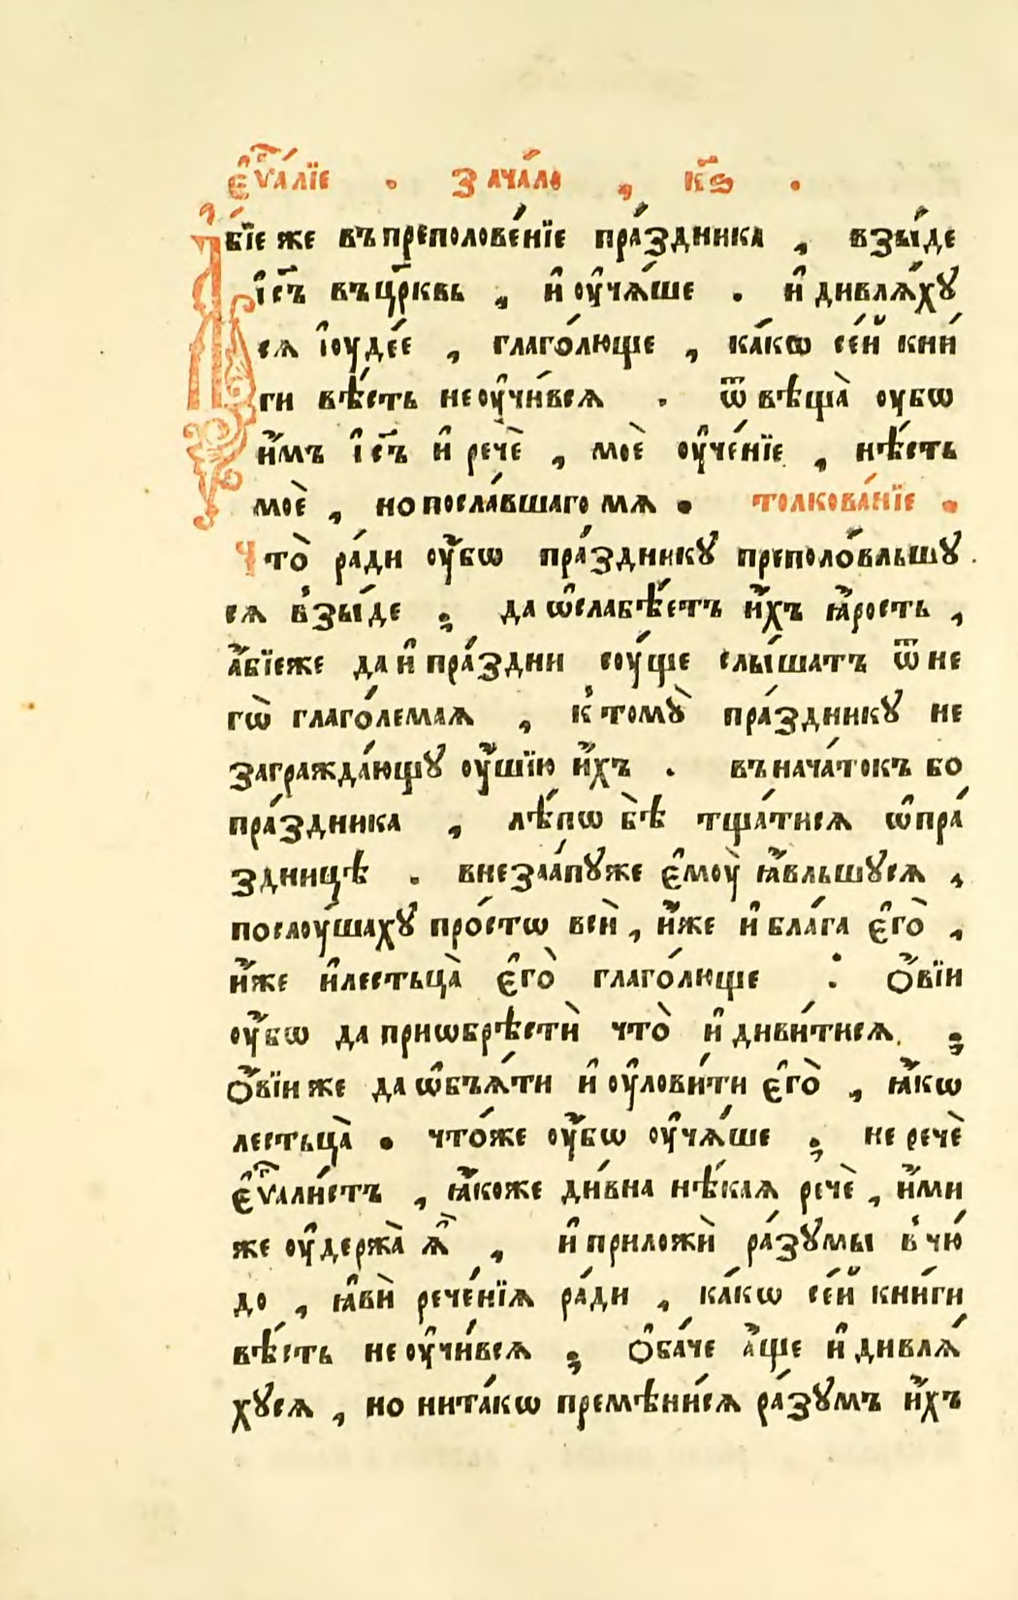 є҆ѵⷢ҇а́лїе . зача́ло , к҃ѕ .
А҆бі́е же въпреполове́нїе пра́здника , взы́де
і҆с҃ъ въцр҃квь , и҆ оу҆чѧ́ше . и҆ дивлѧ́хꙋ
сѧ і҆оуде́е , глаго́люще , ка́кѡ се́й кни́
ги вѣ́сть неоу҆чи́всѧ . ѿвѣща̀ оубѡ
и҆̀мъ і҆с҃ъ и҆ речѐ , моѐ оу҆че́нїе , нѣ́сть
моѐ , но посла́вшаго мѧ . толкова́нїе .
Что̀ ра́ди оу҆́бѡ пра́зднику преполо́вльшꙋ .
сѧ в̾зы́де ; да ѡ҆слабѣ́етъ и҆́хъ ꙗ҆́рость ,
а҆́бїеже да и҆ пра́здни соу́ще слы́шатъ ѿ не
гѡ̀ глаго́лемаѧ , к̾ томꙋ̀ пра́зднику не
загражда́ющꙋ оу҆́шїю и҆́хъ . въ нача́токъ бо
пра́здника , лѣ́пѡ бѣ̀ тща́тисѧ ѡ҆ пра́
здницѣ . внезаа́пꙋже є҆моу̀ ꙗ҆́вльшусѧ ,
послоу́шахꙋ про́стѡ всѝ , и҆́же и҆ бла́га є҆го̀ ,
и҆́же и҆ лестьца̀ є҆го̀ глаго́люще : Ѻ҆́вїи
оу҆́бѡ да приѡбрѣ́стѝ что̀ и҆ диви́тисѧ ;
Ѻ҆́вїи же да ѡ҆бъѧ́ти и҆ оу҆лови́ти є҆го̀ , ꙗ҆́кѡ
лестьца̀ . что́же оу҆́бѡ оу҆чѧ́ше ; не речѐ
є҆ѵⷢ҇али́стъ , ꙗ҆́коже ди́вна нѣ́каѧ речѐ , и҆́ми
же оу҆держа̀ ѧ҆̀ , и҆ приложѝ ра́зꙋмы в̾ чю́
до , ꙗ҆вѝ рече́нїѧ ра́ди , ка́кѡ се́й кни́ги
вѣ́сть не оу҆чи́всѧ ; Ѻ҆ба́че а҆́ще и҆ дивлѧ́
хꙋсѧ , но нита́кѡ премѣни́сѧ ра́зꙋмъ и҆́хъ